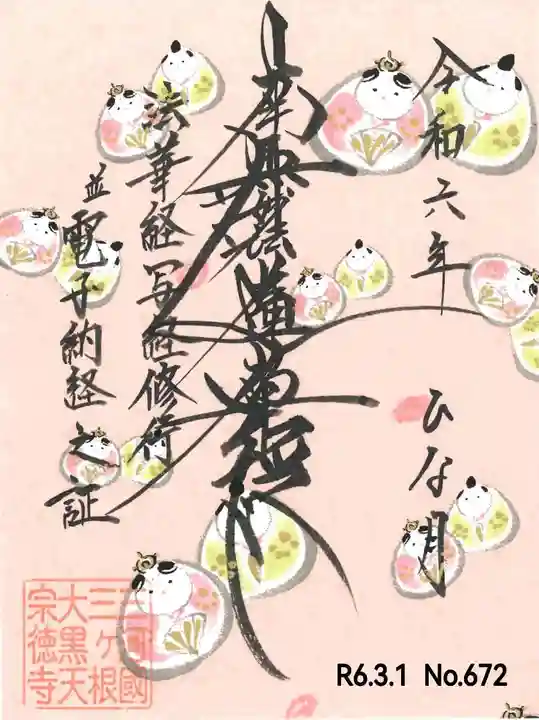 令和六年
ひな月
南無妙法蓮華経
法華経写経修行
並電子納経之証
三河國
三ヶ根
大黒天
宗徳寺
R6.3.1 No.672